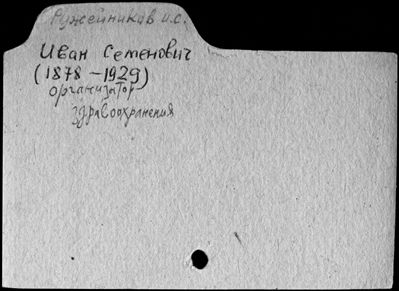 Ружейников И.С.
Иван Семенович
(1878 – 1929)
организатор
здравоохранения